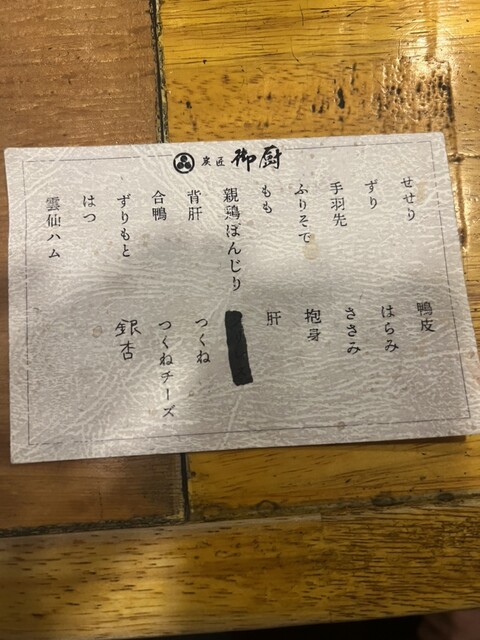 炭匠 御厨
せせり
ずり
手羽先
ふりそで
もも
親鶏ぼんじり
背肝
合鴨
ずりもと
はつ
雲仙ハム
鴨皮
はらみ
ささみ
抱身
肝
つくね
つくねチーズ
銀杏